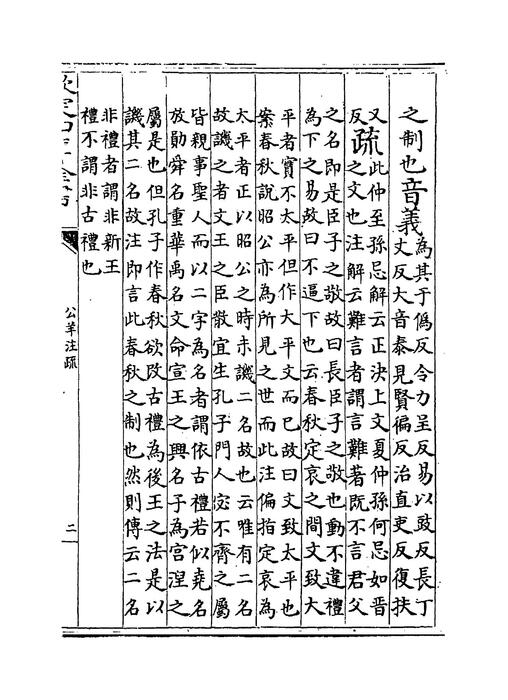 之制也音義
為其于偽反令力呈反易以豉反長丁
丈反大音泰見賢徧反治直吏反復扶
又
反
疏
此仲至孫忌解云正決上文夏仲孫何忌如晉
之文也注解云難言者謂言難著既不言君父
之名即是臣子之敬故曰長臣子之敬也動不違禮
為下之易故曰不逼下也云春秋定哀之間文致大
平者實不太平但作大平文而已故曰文致太平也
案春秋說昭公亦為所見之世而此注偏指定哀為
太平者正以昭公之時未譏二名故也云唯有二名
故譏之者文王之臣散宜生孔子門人宓不齊之屬
皆親事聖人而以二字為名者謂依古禮若似堯名
放勛舜名重華禹名文命宣王之興名子為宫涅之
屬是也但孔子作春秋欲改古禮為後王之法是以
譏其二名故注即言此春秋之制也然則傳云二名
非禮者謂非新王
禮不謂非古禮也
公羊注疏
二